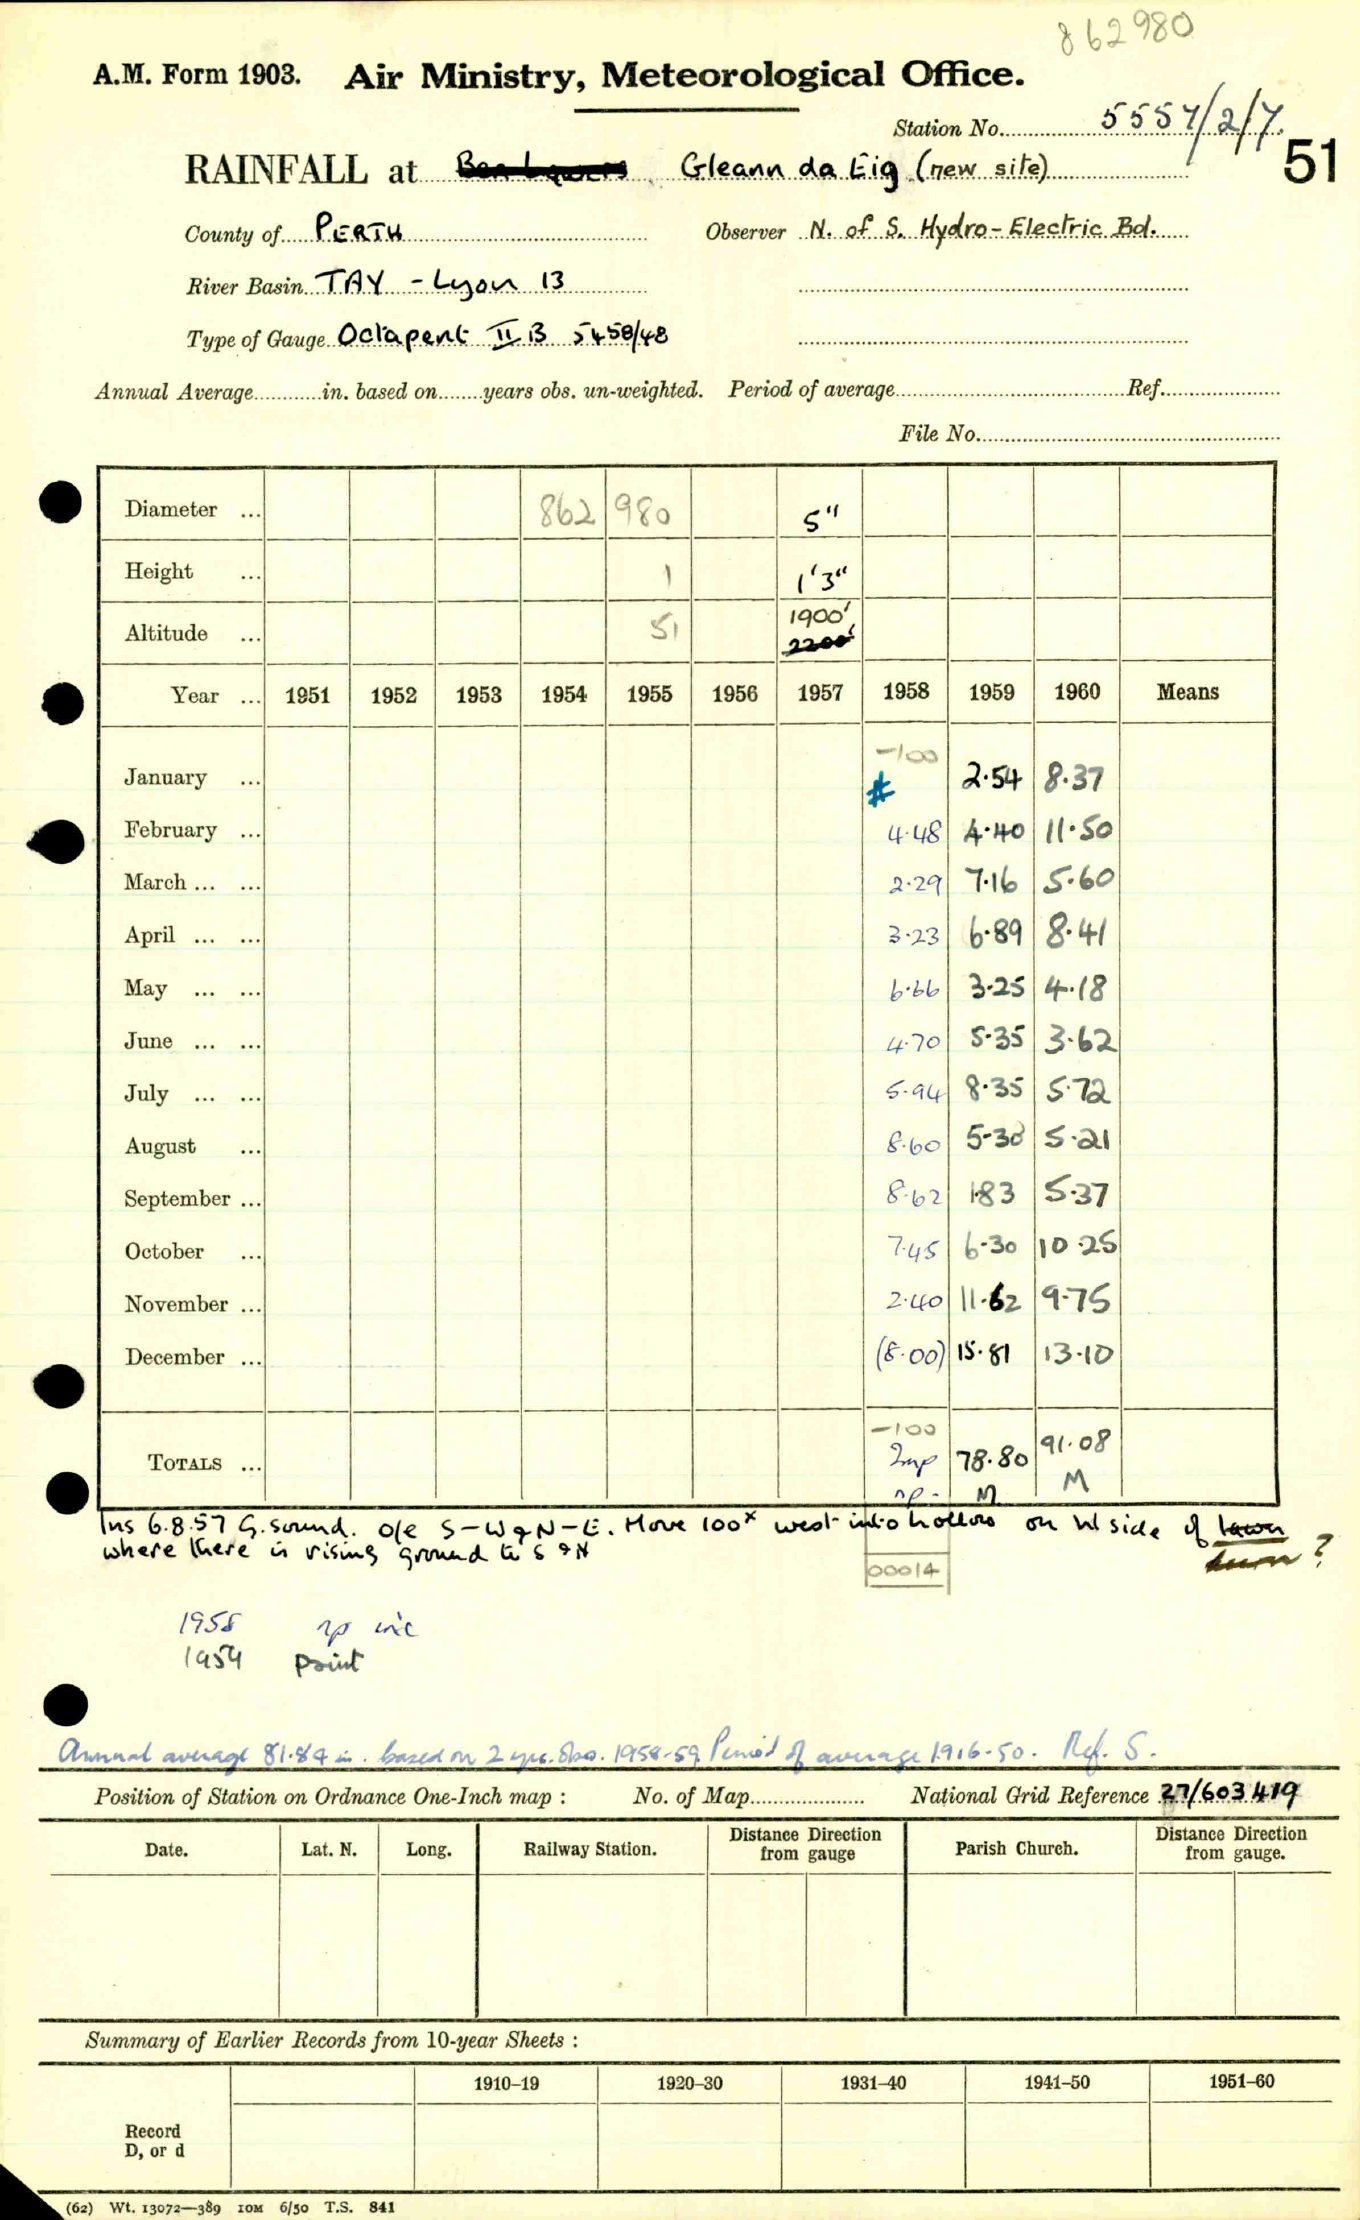 862980
A.M. Form 1903. Air Ministry, Meteorological Office.
Station No. 5557/2/7.
51
RAINFALL at Ben Lawers Gleann da Eig (new site)
County of PERTH Observer N. of S. Hydro-Electric Bd.
River Basin TAY - Lyon 13
Type of Gauge Octapent II B 5458/48
Annual Average in. based on years obs. un-weighted. Period of average Ref.
File No.
Diameter ... 862 980 5"
Height ... 1 1'3"
Altitude ... 51 1900' 2200'
Year ... 1951 1952 1953 1954 1955 1956 1957 1958 1959 1960 Means
-100
January ... # 2.54 8.37
February ... 4.48 4.40 11.50
March ... ... 2.29 7.16 5.60
April ... ... 3.23 6.89 8.41
May ... ... 6.66 3.25 4.18
June ... ... 4.70 5.35 3.62
July ... ... 5.94 8.35 5.72
August ... 8.60 5.30 5.21
September ... 8.62 1.83 5.37
October ... 7.45 6.30 10.25
November ... 2.40 11.62 9.75
December ... (8.00) 15.81 13.10
-100
TOTALS ... Imp 78.80 91.08
np. M M
Ins 6.8.57 G. sound. o/e S-W & N-E. Move 100x west into hollow on W side of lawn
where there is rising ground to S & N burn ?
00014
1958 np inc
1959 print
Annual average 81.84 in. based on 2 yrs. obs. 1958-59 Period of average 1916-50. Ref. S.
Position of Station on Ordnance One-Inch map : No. of Map National Grid Reference 27/603419
Date. Lat. N. Long. Railway Station. Distance from Direction gauge Parish Church. Distance from Direction gauge.
Summary of Earlier Records from 10-year Sheets :
1910–19 1920–30 1931–40 1941–50 1951–60
Record
D, or d
(62) Wt. 13072—389 10M 6/50 T.S. 841